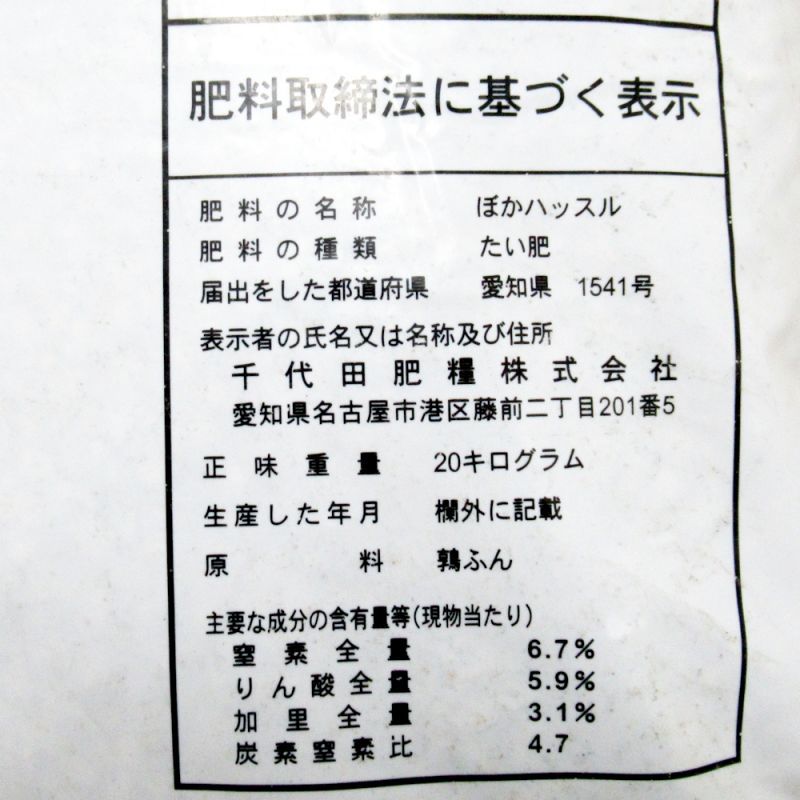 肥料取締法に基づく表示
肥料の名称 ぼかハッスル
肥料の種類 たい肥
届出をした都道府県 愛知県 1541号
表示者の氏名又は名称及び住所
千代田肥糧株式会社
愛知県名古屋市港区藤前二丁目201番5
正味重量 20キログラム
生産した年月 欄外に記載
原料 鶉ふん
主要な成分の含有量等(現物当たり)
窒素全量 6.7%
りん酸全量 5.9%
加里全量 3.1%
炭素窒素比 4.7